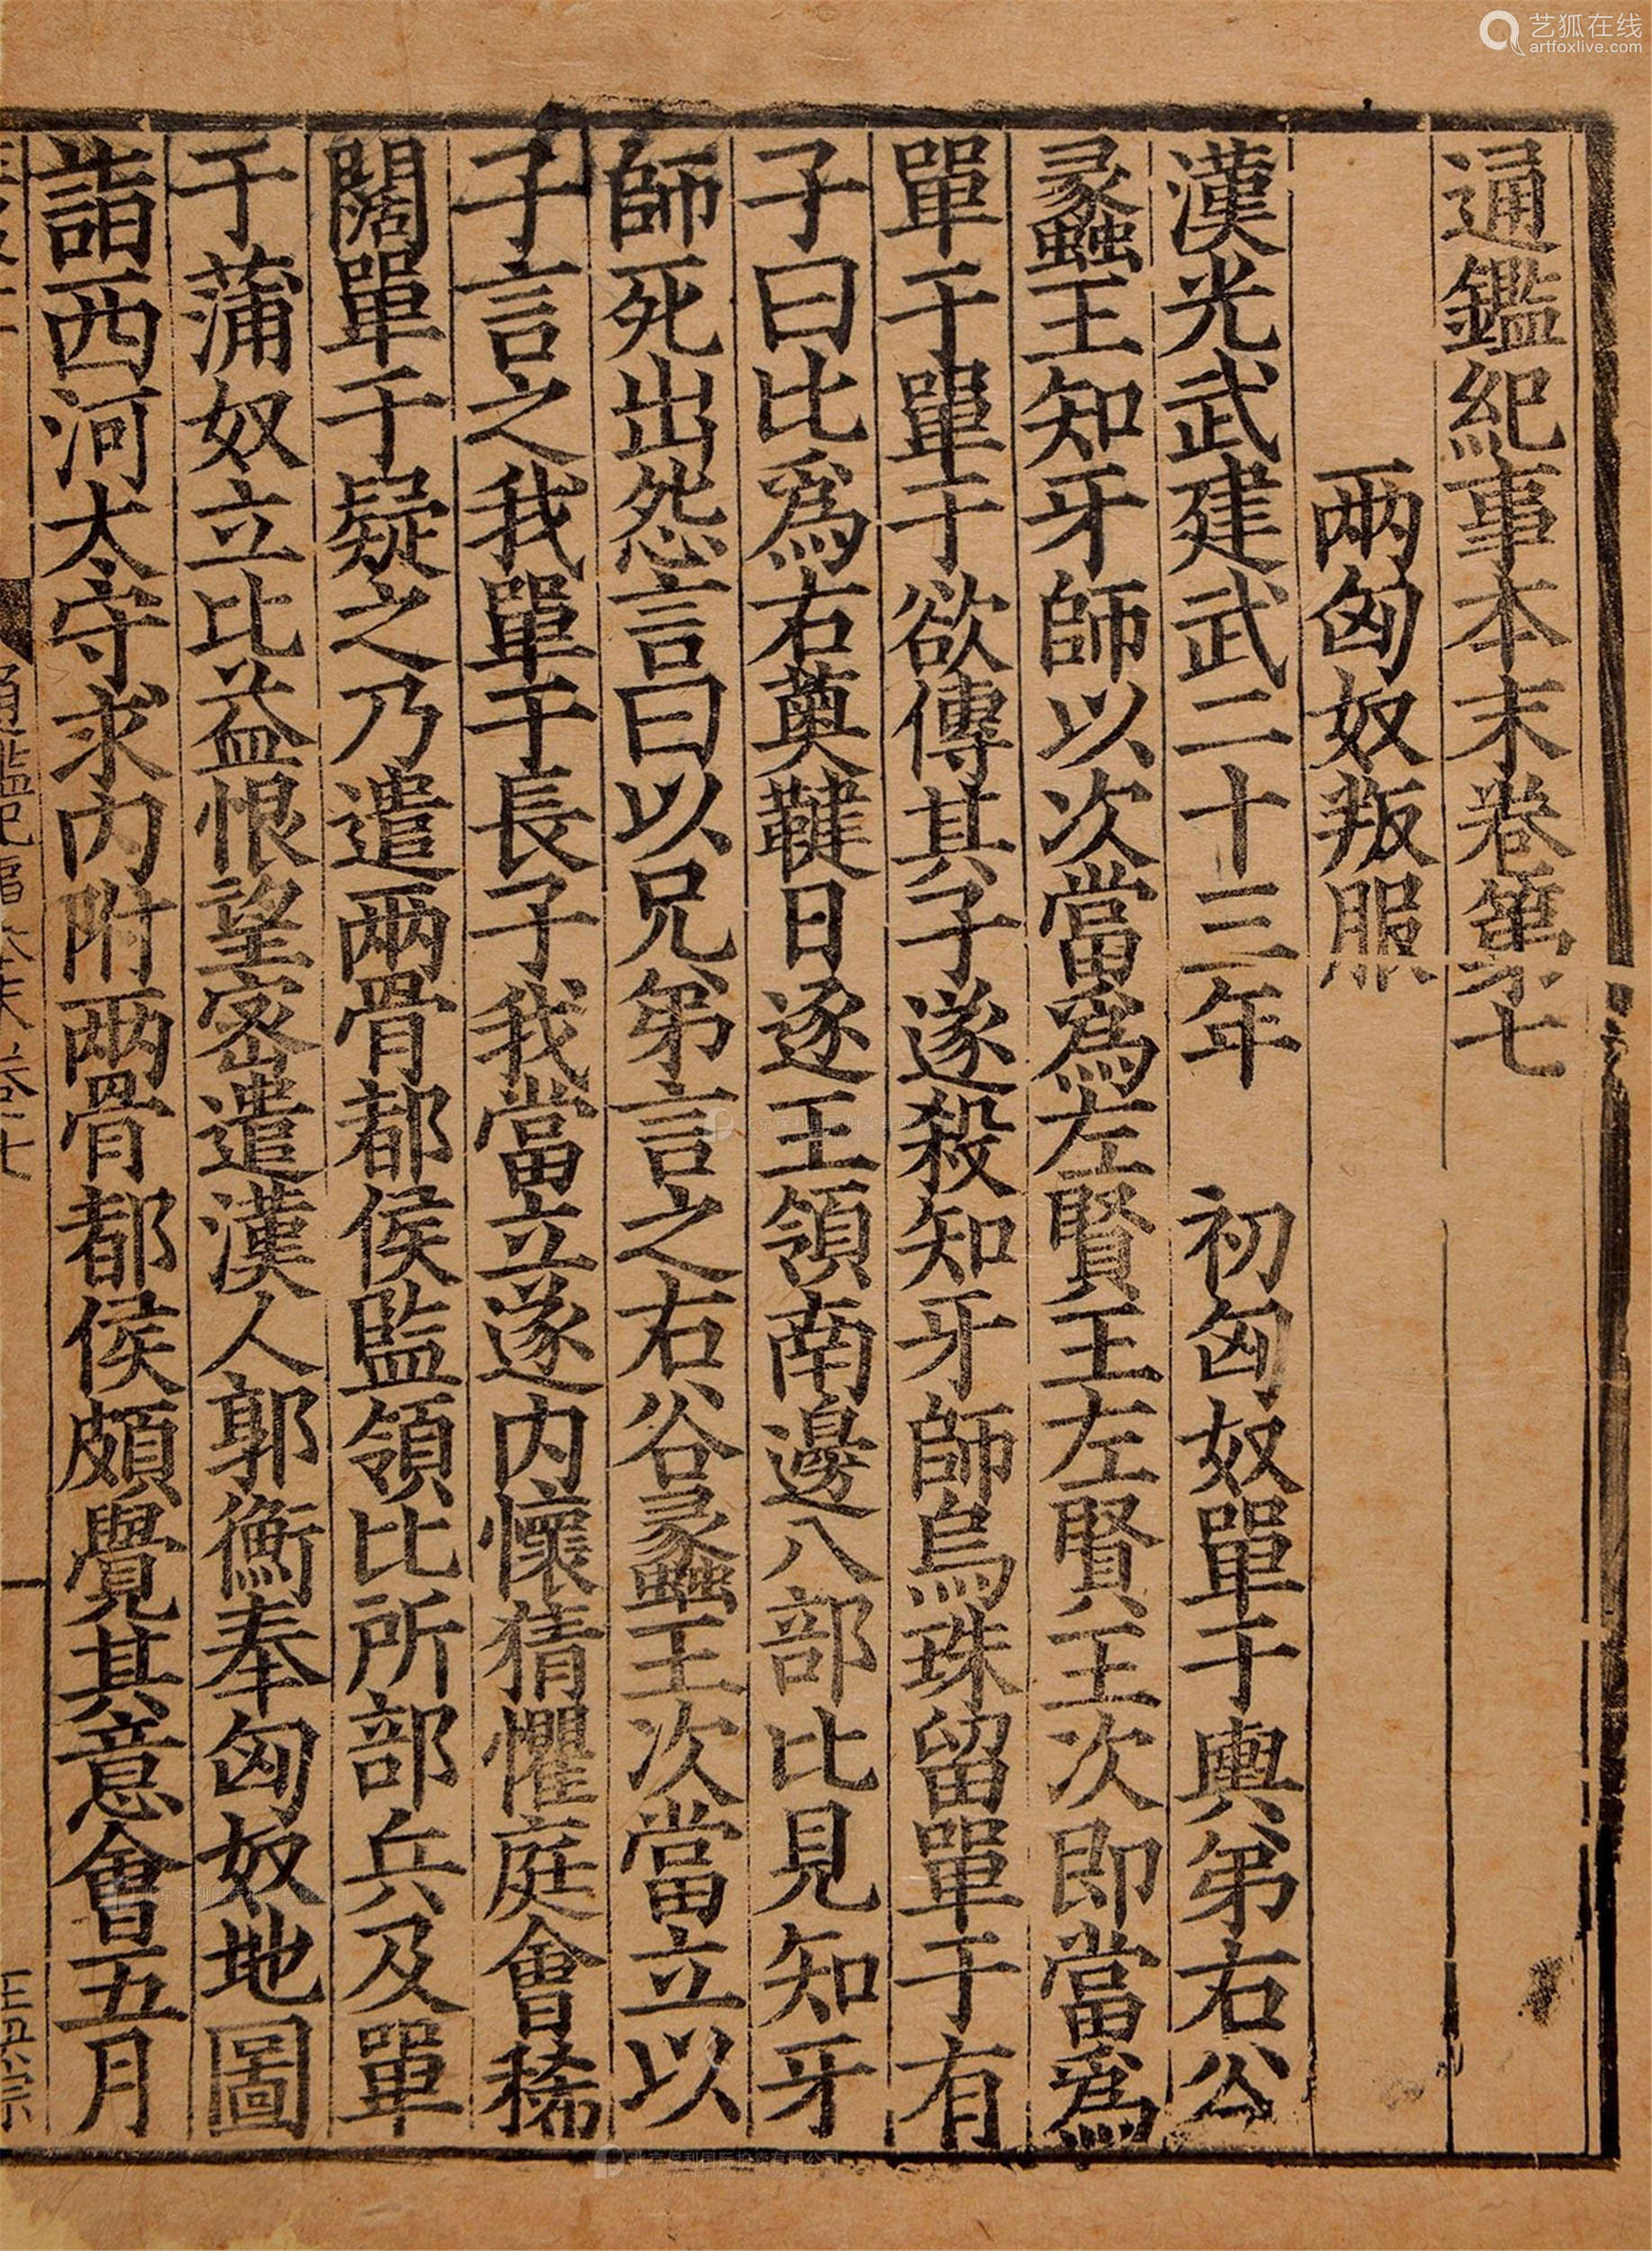 艺狐在线
artfoxlive.com
通鑑紀事本末卷第七
兩匈奴叛服
漢光武建武二十三年 初匈奴單于輿弟右谷
蠡王知牙師以次當爲左賢王左賢王次即當爲
單于單于欲傳其子遂殺知牙師烏珠留單于有
子曰比爲右薁鞬日逐王領南邊八部比見知牙
師死出怨言曰以兄弟言之右谷蠡王次當立以
子言之我單于長子我當立遂内懷猜懼庭會稀
闊單于疑之乃遣兩骨都侯監領比所部兵及單
于蒲奴立比益恨望密遣漢人郭衡奉匈奴地圖
詣西河太守求内附兩骨都侯頗覺其意會五月
通鑑紀事本末卷七
一